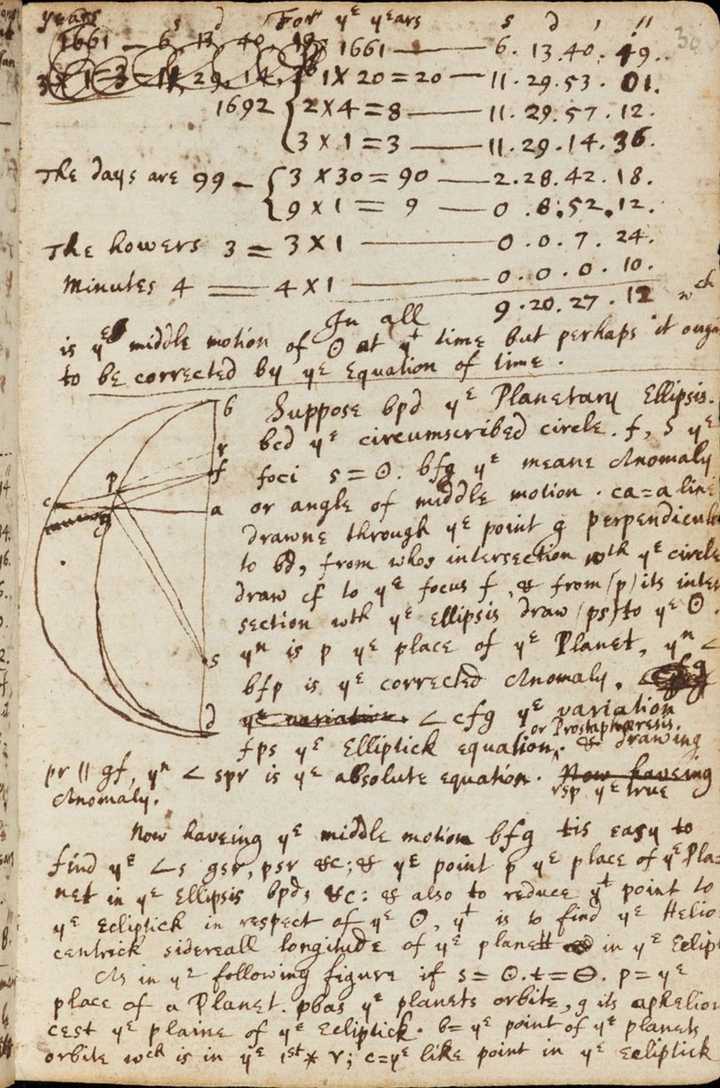 years s d For yᵉ years s d ' "
1661 — 6 13 40 1661 —— 6. 13. 40. 49.
3 × 1 = 3 = 11 29 14 1 × 20 = 20 — 11. 29. 53. 01.
1692 { 2 × 4 = 8 —— 11. 29. 57. 12.
3 × 1 = 3 —— 11. 29. 14. 36.
The days are 99 — { 3 × 30 = 90 —— 2. 28. 42. 18.
9 × 1 = 9 —— 0. 8. 52. 12.
The howers 3 = 3 × 1 —— 0. 0. 7. 24.
Minutes 4 = 4 × 1 —— 0. 0. 0. 10.
In all 9. 20. 27. 12 wᶜʰ
is yᵉ middle motion of ☉ at yᵗ time but perhaps it oug
to be corrected by yᵉ Equation of time.
Suppose bpd yᵉ Planetary Ellipsis.
bcd yᵉ circumscribed circle. f, s yᵉ
foci s = ☉. bfg yᵉ meane Anomaly
or angle of middle motion. ca = a line
drawne through yᵉ point g perpendicul
to bd, from whos intersection wᵗʰ yᵉ circle
draw cf to yᵉ focus f, & from (p) its inter
section wᵗʰ yᵉ Ellipsis draw (ps) to yᵉ ☉.
yⁿ is p yᵉ place of yᵉ Planet, yⁿ <
bfp is yᵉ corrected Anomaly. < cfg
yᵉ variation. < cfg yᵉ variation
or Prostaphaeresis.
fps yᵉ Elliptick equation, & drawing
pr ∥ gf, yⁿ < spr is yᵉ absolute equation. Now haveing
rsp yᵉ true
Anomaly.
Now haveing yᵉ middle motion bfg tis easy to
find yᵉ <s gsr, psr &c; & yᵉ point p yᵉ place of yᵉ Pla=
net in yᵉ Ellipsis bpd, &c: & also to reduce yᵗ point to
yᵉ Ecliptick in respect of yᵉ ☉, yᵗ is to find yᵉ Helio
centrick sidereall longitude of yᵉ planett in yᵉ Eclipt
As in yᵉ following figure if s = ☉. t = ⊖. p = yᵉ
place of a Planet. pbas yᵉ planets orbite, g its aphelion
cest yᵉ plaine of yᵉ Ecliptick. b = yᵉ point of yᵉ planets
orbite wᶜʰ is in yᵉ 1ˢᵗ * ♈; c = yᵉ like point in yᵉ Ecliptick
b
r
f
a
p
c
s
d
30